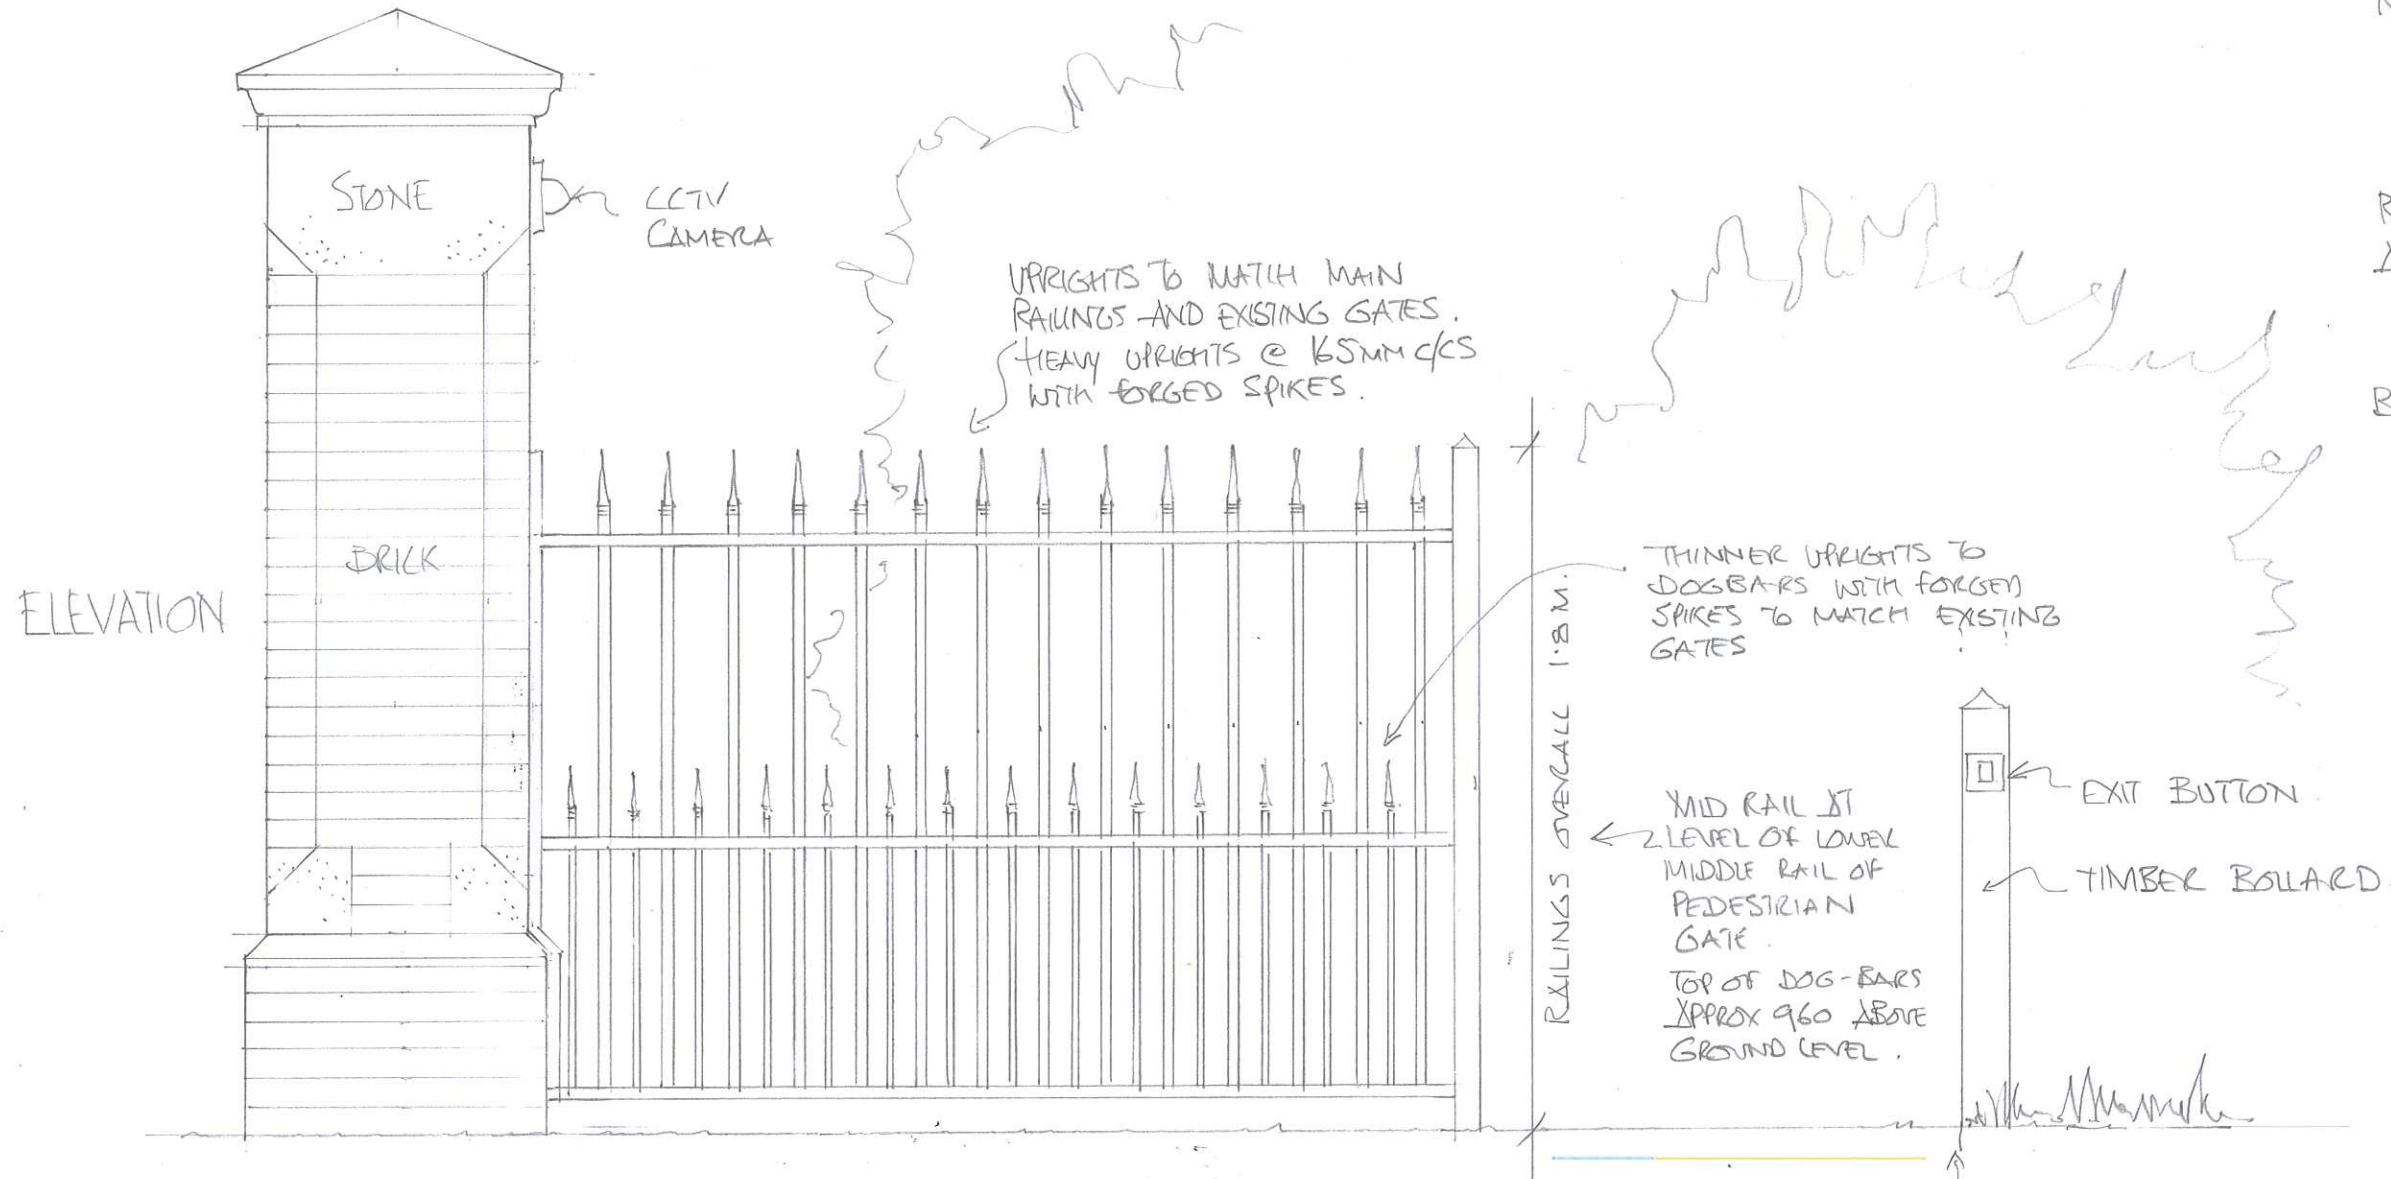 STONE
CCTV
CAMERA
UPRIGHTS TO MATCH MAIN
RAILINGS AND EXISTING GATES.
HEAVY UPRIGHTS @ 165MM C/CS
WITH FORGED SPIKES.
BRICK
ELEVATION
RAILINGS OVERALL 1.8 M.
THINNER UPRIGHTS TO
DOGBARS WITH FORGED
SPIKES TO MATCH EXISTING
GATES
MID RAIL AT
LEVEL OF LOWER
MIDDLE RAIL OF
PEDESTRIAN
GATE.
TOP OF DOG-BARS
APPROX 960 ABOVE
GROUND LEVEL.
EXIT BUTTON
TIMBER BOLLARD
R
B